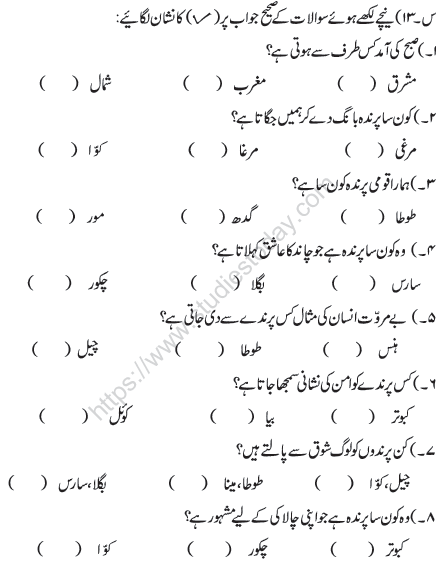 س۔۱۳) نیچے لکھے ہوئے سوالات کے صحیح جواب پر (✓) کا نشان لگائیے:
۱۔) صبح کی آمد کس طرف سے ہوتی ہے؟
مشرق ( ) مغرب ( ) شمال ( )
۲۔) کون سا پرندہ بانگ دے کر ہمیں جگاتا ہے؟
مرغی ( ) مرغا ( ) کوّا ( )
۳۔) ہمارا قومی پرندہ کون سا ہے؟
طوطا ( ) گدھ ( ) مور ( )
۴۔) وہ کون سا پرندہ ہے جو چاند کا عاشق کہلاتا ہے؟
سارس ( ) بگلا ( ) چکور ( )
۵۔) بے مروّت انسان کی مثال کس پرندے سے دی جاتی ہے؟
ہنس ( ) طوطا ( ) چیل ( )
۶۔) کس پرندے کو امن کی نشانی سمجھا جاتا ہے؟
کبوتر ( ) بیا ( ) کوئل ( )
۷۔) کن پرندوں کو لوگ شوق سے پالتے ہیں؟
چیل، کوّا ( ) طوطا، مینا ( ) بگلا، سارس ( )
۸۔) وہ کون سا پرندہ ہے جو اپنی چالاکی کے لیے مشہور ہے؟
کبوتر ( ) چکور ( ) کوّا ( )
https://www.studiestoday.com